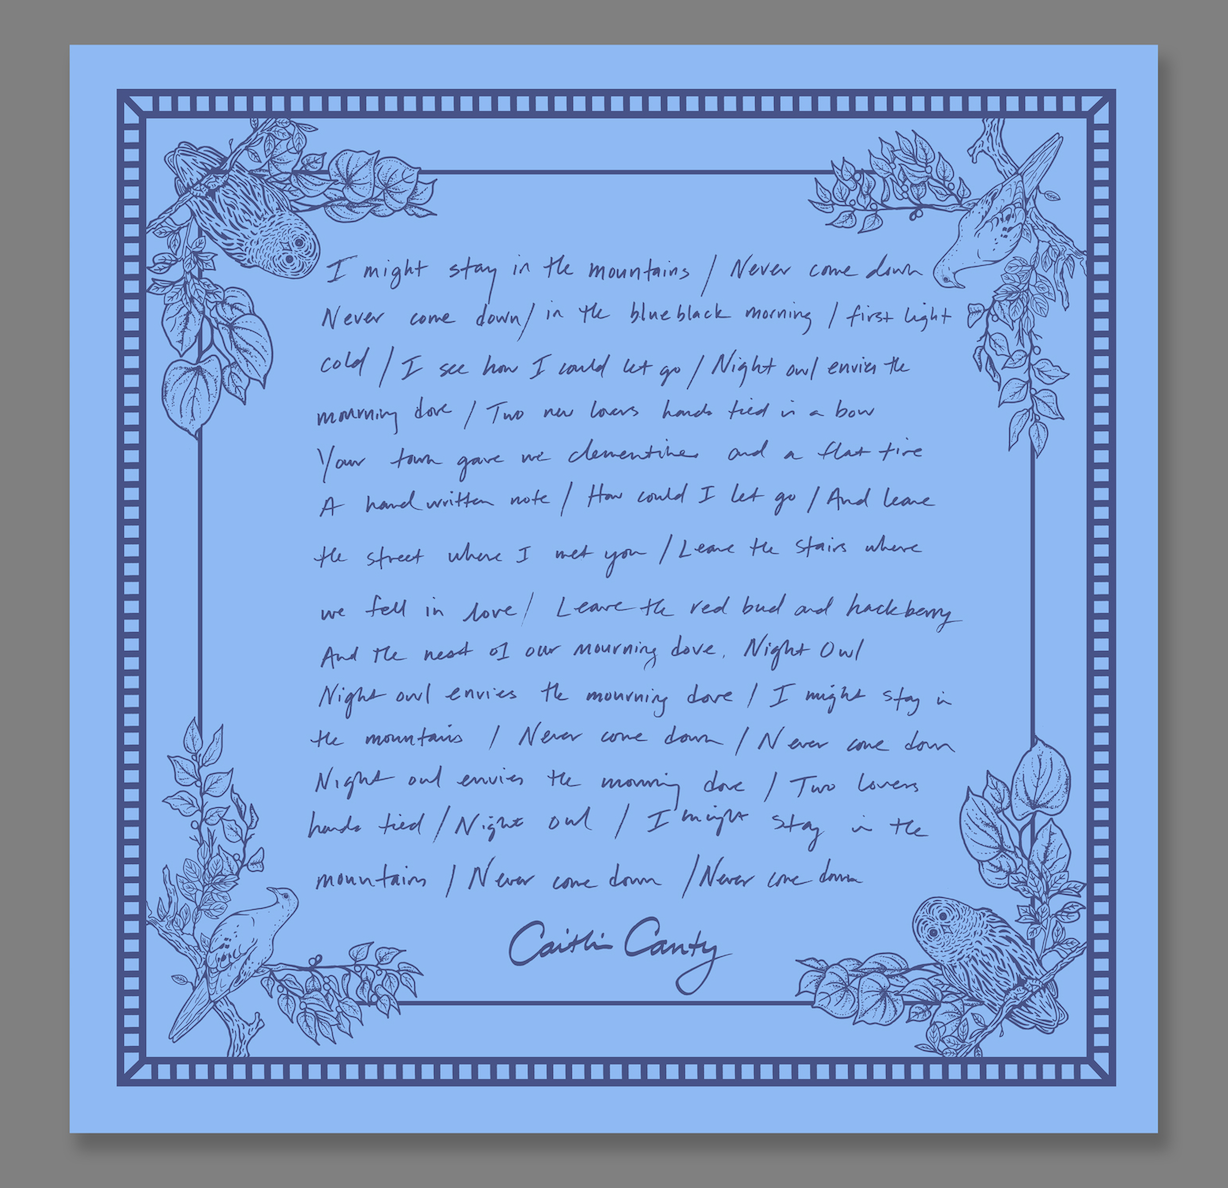 I might stay in the mountains / Never come down
Never come down / in the blueblack morning / first light
cold / I see how I could let go / Night owl envies the
mourning dove / Two new lovers hands tied in a bow
Your town gave me clementines and a flat tire
A handwritten note / How could I let go / And leave
the street where I met you / Leave the stairs where
we fell in love / Leave the red bud and hackberry
And the nest of our mourning dove. Night Owl
Night owl envies the mourning dove / I might stay in
the mountains / Never come down / Never come down
Night owl envies the mourning dove / Two lovers
hands tied / Night owl / I might stay in the
mountains / Never come down / Never come down
Caitlin Canty